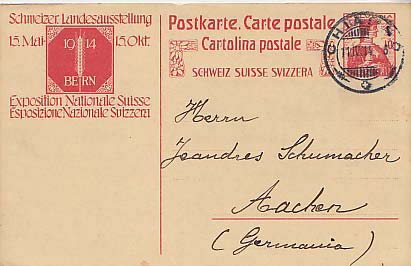 Schweizer. Landesausstellung
15. Mai 15. Okt.
19 14
BERN
Exposition Nationale Suisse
Esposizione Nazionale Svizzera
Postkarte. Carte postale
Cartolina postale
SCHWEIZ SUISSE SVIZZERA
CHIASSO
Herrn
Jeandres Schumacher
Aachen
(Germania)